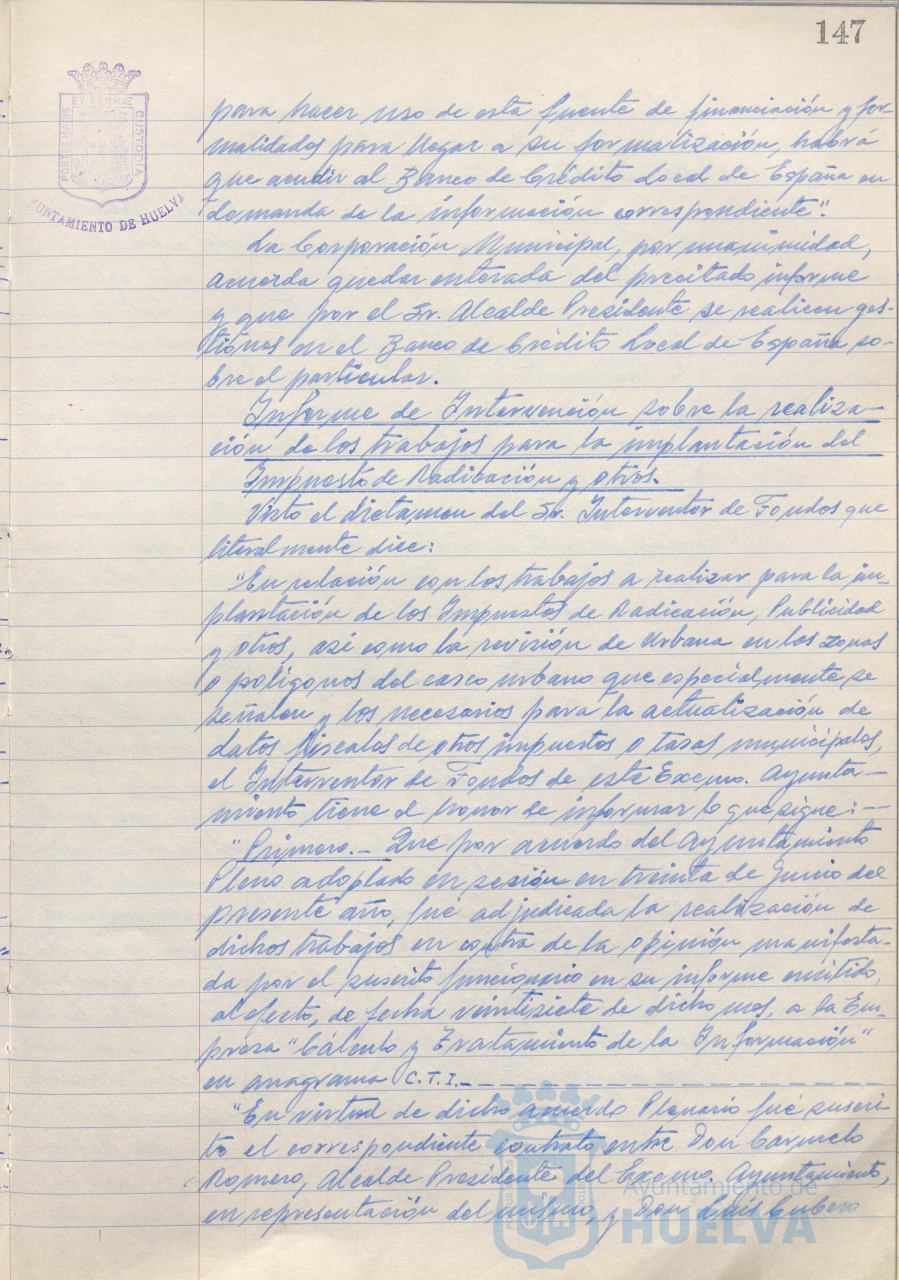 147
PORTUS MARIS ET TERRÆ CUSTODIA
AYUNTAMIENTO DE HUELVA
para hacer uso de esta fuente de financiación y for-
malidades para llegar a su formalización, habrá
que acudir al Banco de Crédito Local de España en
demanda de la información correspondiente".
La Corporación Municipal, por unanimidad,
acuerda quedar enterada del precitado informe
y que por el Sr. Alcalde Presidente se realicen ges-
tiones en el Banco de Crédito Local de España so-
bre el particular.
Informe de Intervención sobre la realiza-
ción de los trabajos para la implantación del
Impuesto de Radicación y otros.
Visto el dictamen del Sr. Interventor de Fondos que
literalmente dice:
"En relación con los trabajos a realizar para la im-
plantación de los Impuestos de Radicación, Publicidad
y otros, así como la revisión de Urbana en las zonas
o polígonos del casco urbano que especialmente se
señalen y los necesarios para la actualización de
datos fiscales de otros impuestos o tasas municipales,
el Interventor de Fondos de este Excmo. Ayunta-
miento tiene el honor de informar lo que sigue: --
"Primero.- Que por acuerdo del Ayuntamiento
Pleno adoptado en sesión en treinta de Junio del
presente año, fué adjudicada la realización de
dichos trabajos en contra de la opinión manifesta-
da por el suscrito funcionario en su informe emitido,
al efecto, de fecha veintisiete de dicho mes, a la Em-
presa "Cálculo y Tratamiento de la Información"
en anagrama C.T.I.-
"En virtud de dicho acuerdo Plenario fué suscri-
to el correspondiente contrato entre Don Carmelo
Romero, Alcalde Presidente del Excmo. Ayuntamiento,
en representación del mismo, y Don Luís Cubero
Ayuntamiento de
HUELVA